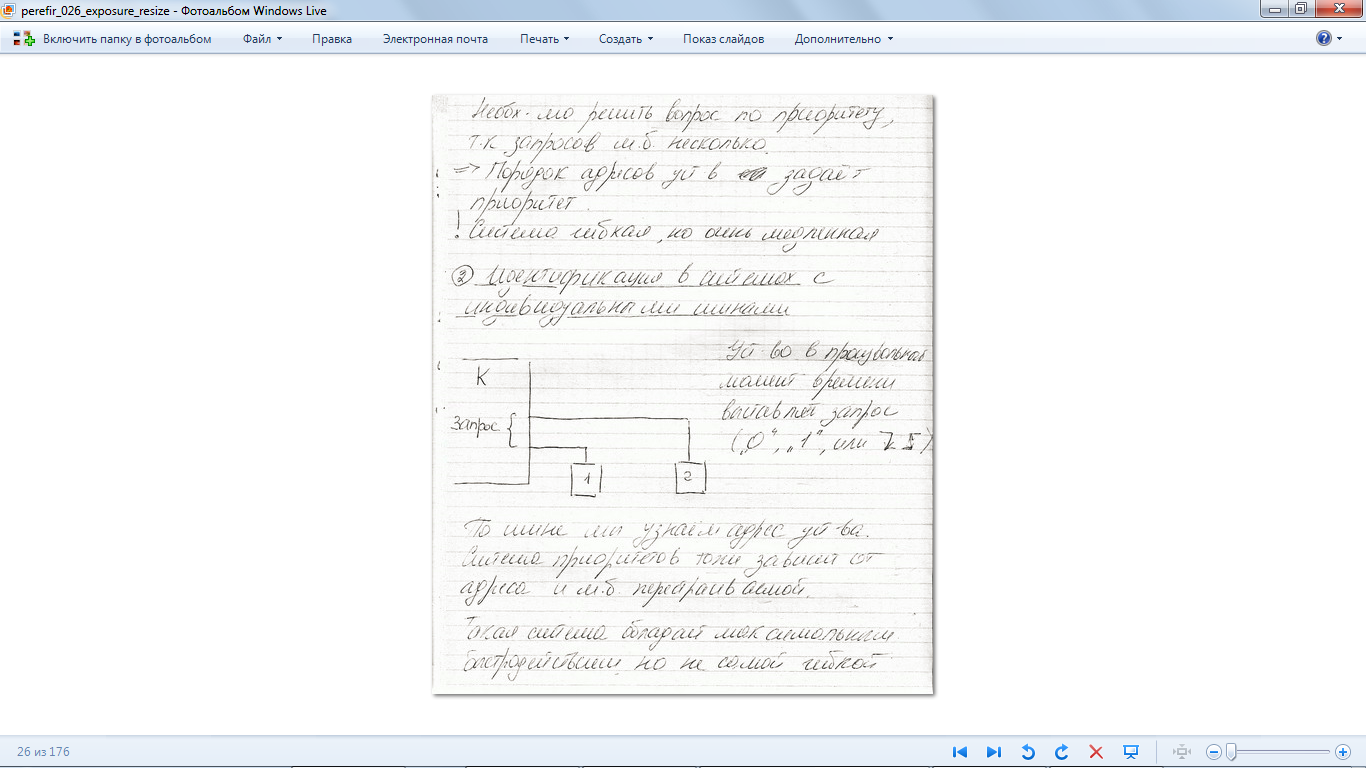 perefir_026_exposure_resize - Фотоальбом Windows Live
Включить папку в фотоальбом Файл Правка Электронная почта Печать Создать Показ слайдов Дополнительно
Необх-мо решить вопрос по приоритету,
т.к запросов м.б. несколько.
=> Порядок адресов уст в задаёт
приоритет.
! Система гибкая, но очень медленная
② Идентификация в системах с
индивидуальными шинами
Уст во в произвольный
момент времени
выставляет запрос
(„0“, „1“, или
К
Запрос {
1
2
По шине мы узнаём адрес уст-ва.
Система приоритетов тоже зависит от
адреса и м.б. перестраиваемой.
Такая система обладает максимальным
быстродействием но не самой гибкой
26 из 176